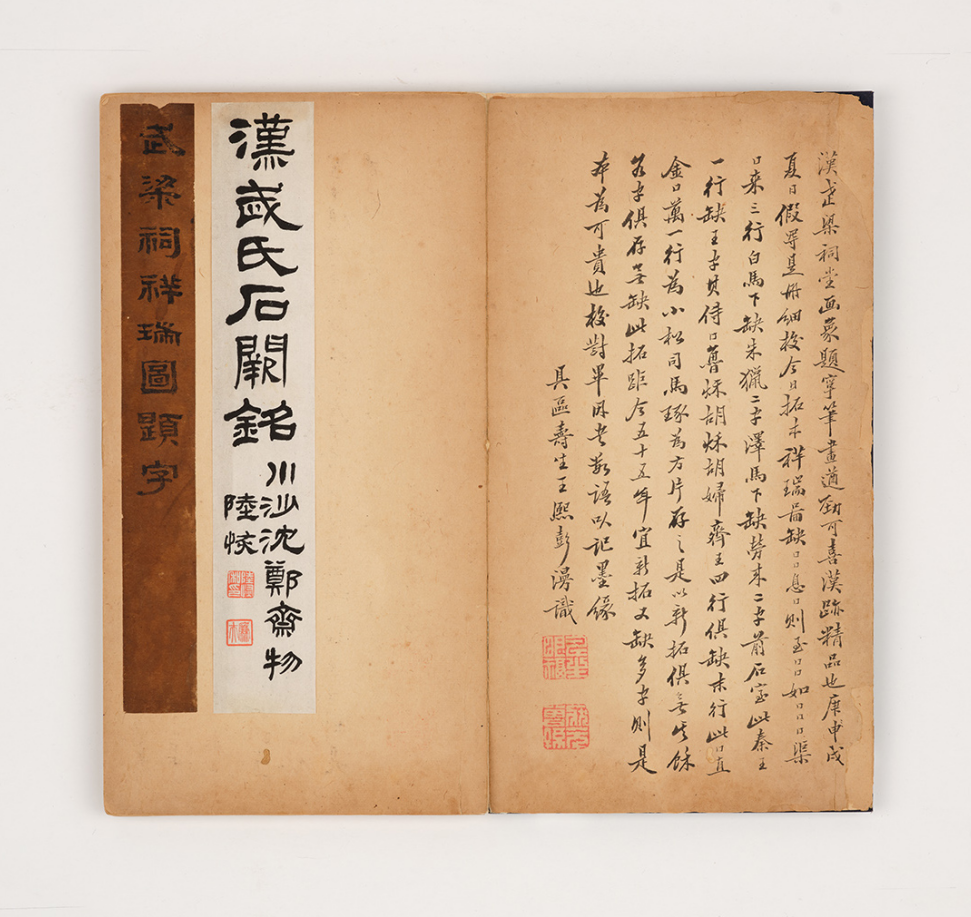 漢武梁祠堂画象題字筆畫遒勁可喜漢跡精品也庚申歲
夏日假得是冊細校今日拓本祥瑞圖缺口口息口則至口口如口口口渠
口来三行白馬下缺朱獵二字澤馬下缺勞来二字前石室此秦王
一行缺王字其侍口魯秋胡秋胡婦齊王四行俱缺末行此口直
金口萬一行為小松司馬琢為方片存之是以新拓俱無此秌
各字俱存無缺此拓距今五十五年宜新拓又缺多字則是
本為可貴也校對畢因書数語以記墨緣
具區壽生王熙彭漫識
漢武氏石闕銘
川沙沈鄭齋物
陸恢
武梁祠祥瑞圖題字